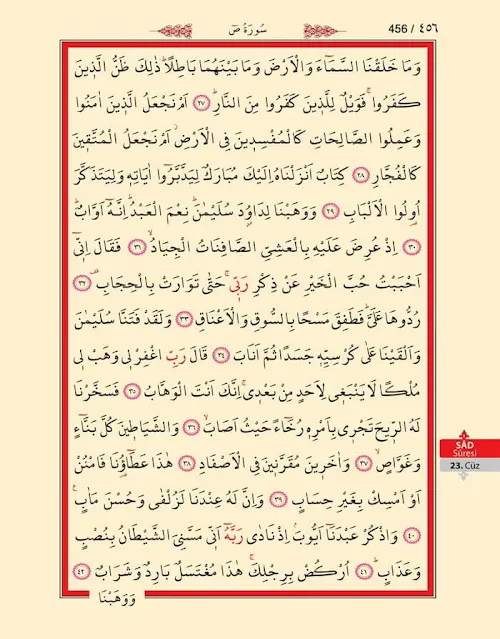 سُورَةُ صٓ
456 / ٤٥٦
وَمَا خَلَقْنَا السَّمَٓاءَ وَالْاَرْضَ وَمَا بَيْنَهُمَا بَاطِلًاۜ ذٰلِكَ ظَنُّ الَّذ۪ينَ
كَفَرُواۚ فَوَيْلٌ لِلَّذ۪ينَ كَفَرُوا مِنَ النَّارِۜ ﴿٢٧﴾ اَمْ نَجْعَلُ الَّذ۪ينَ اٰمَنُوا
وَعَمِلُوا الصَّالِحَاتِ كَالْمُفْسِد۪ينَ فِي الْاَرْضِۘ اَمْ نَجْعَلُ الْمُتَّق۪ينَ
كَالْفُجَّارِ ﴿٢٨﴾ كِتَابٌ اَنْزَلْنَاهُ اِلَيْكَ مُبَارَكٌ لِيَدَّبَّرُٓوا اٰيَاتِه۪ وَلِيَتَذَكَّرَ
اُو۬لُوا الْاَلْبَابِ ﴿٢٩﴾ وَوَهَبْنَا لِدَاوُ۫دَ سُلَيْمٰنَۜ نِعْمَ الْعَبْدُۜ اِنَّهُٓ اَوَّابٌۜ
﴿٣٠﴾ اِذْ عُرِضَ عَلَيْهِ بِالْعَشِيِّ الصَّافِنَاتُ الْجِيَادُۙ ﴿٣١﴾ فَقَالَ اِنّ۪ٓي
اَحْبَبْتُ حُبَّ الْخَيْرِ عَنْ ذِكْرِ رَبّ۪يۚ حَتّٰى تَوَارَتْ بِالْحِجَابِ۠ ﴿٣٢﴾
رُدُّوهَا عَلَيَّۜ فَطَفِقَ مَسْحًا بِالسُّوقِ وَالْاَعْنَاقِ ﴿٣٣﴾ وَلَقَدْ فَتَنَّا سُلَيْمٰنَ
وَاَلْقَيْنَا عَلٰى كُرْسِيِّه۪ جَسَدًا ثُمَّ اَنَابَ ﴿٣٤﴾ قَالَ رَبِّ اغْفِرْ ل۪ي وَهَبْ ل۪ي
مُلْكًا لَا يَنْبَغ۪ي لِاَحَدٍ مِنْ بَعْد۪يۚ اِنَّكَ اَنْتَ الْوَهَّابُ ﴿٣٥﴾ فَسَخَّرْنَا
لَهُ الرّ۪يحَ تَجْر۪ي بِاَمْرِه۪ رُخَٓاءً حَيْثُ اَصَابَۙ ﴿٣٦﴾ وَالشَّيَاط۪ينَ كُلَّ بَنَّٓاءٍ
وَغَوَّاصٍۙ ﴿٣٧﴾ وَاٰخَر۪ينَ مُقَرَّن۪ينَ فِي الْاَصْفَادِ ﴿٣٨﴾ هٰذَا عَطَٓاؤُ۬نَا فَامْنُنْ
اَوْ اَمْسِكْ بِغَيْرِ حِسَابٍ ﴿٣٩﴾ وَاِنَّ لَهُ عِنْدَنَا لَزُلْفٰى وَحُسْنَ مَاٰبٍ۟
﴿٤٠﴾ وَاذْكُرْ عَبْدَنَٓا اَيُّوبَۢ اِذْ نَادٰى رَبَّهُٓ اَنّ۪ي مَسَّنِيَ الشَّيْطَانُ بِنُصْبٍ
وَعَذَابٍۜ ﴿٤١﴾ اُرْكُضْ بِرِجْلِكَۚ هٰذَا مُغْتَسَلٌ بَارِدٌ وَشَرَابٌ ﴿٤٢﴾
وَوَهَبْنَا
SÂD
Sûresi
23. Cüz